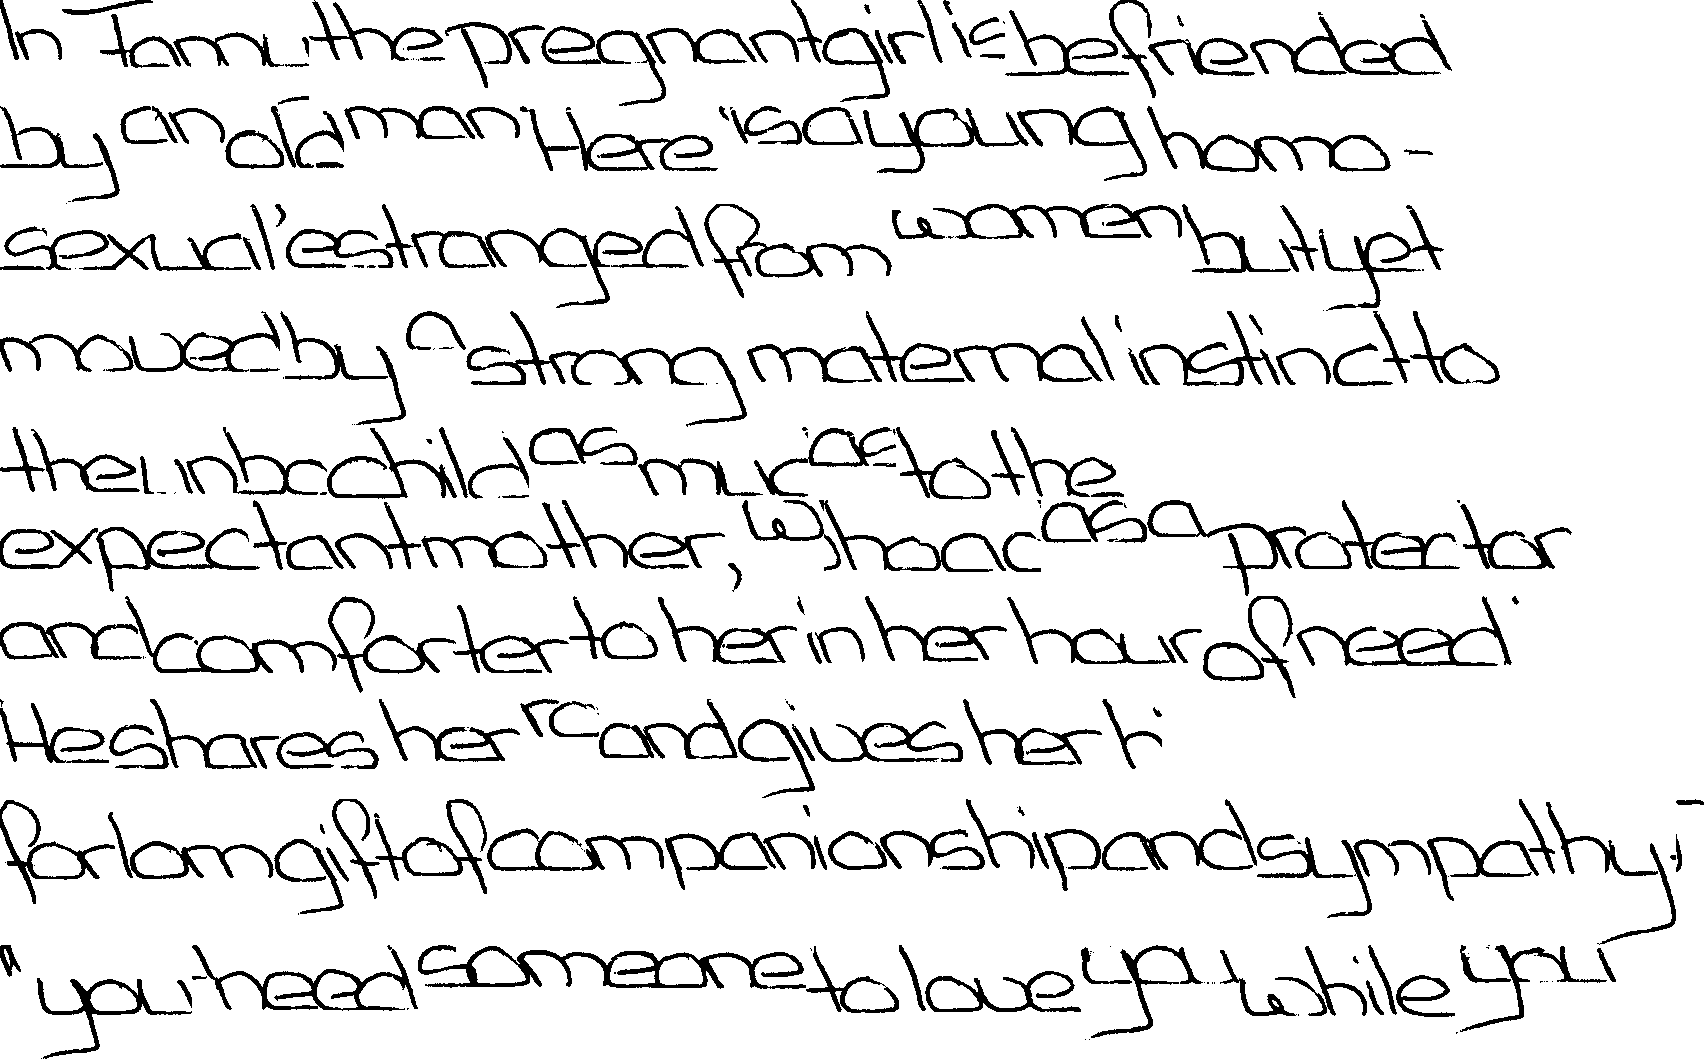 In Tamu the pregnant girl is befriended
by an old man Here "is a young homo-
sexual' estranged from women but yet
moved by a strong maternal instinct to
the child as as to the
expectant mother, who as a protector
and comforter to her in her hour of need.
He shares her and gives her
forlorn gift of companionship and sympathy.
"you need someone to love you while you